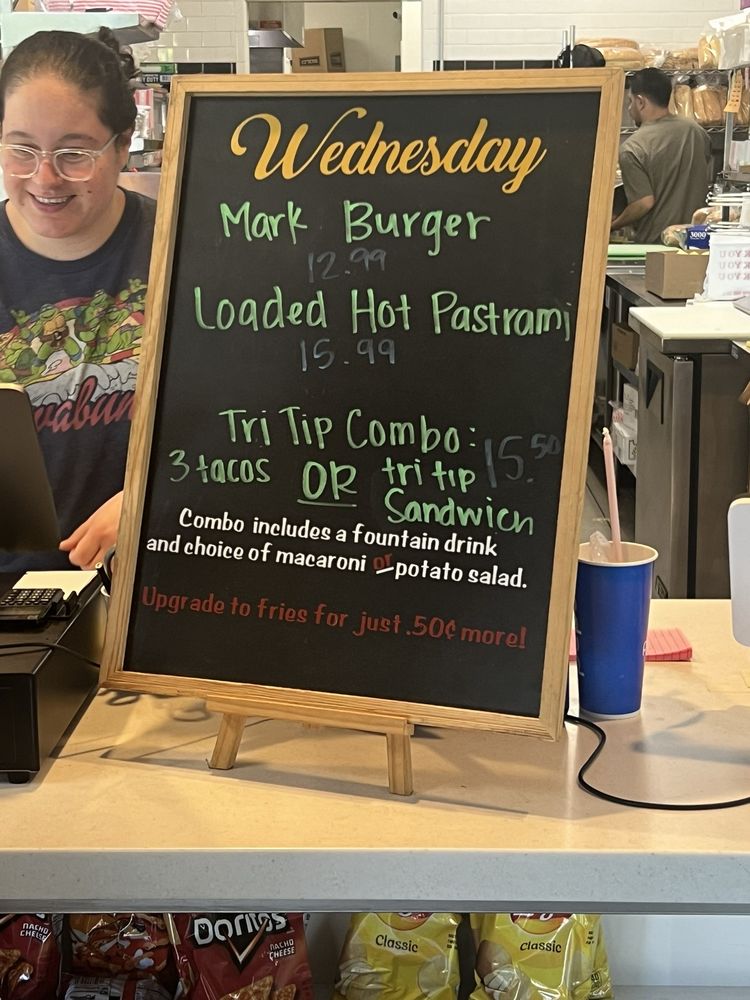 Wednesday
Mark Burger
12.99
Loaded Hot Pastrami
15.99
Tri Tip Combo: 15.50
3 tacos OR tri tip
Sandwich
Combo includes a fountain drink
and choice of macaroni or potato salad.
Upgrade to fries for just .50¢ more!
NACHO
CHEESE
Doritos
NACHO
CHEESE
Classic
Classic
3000